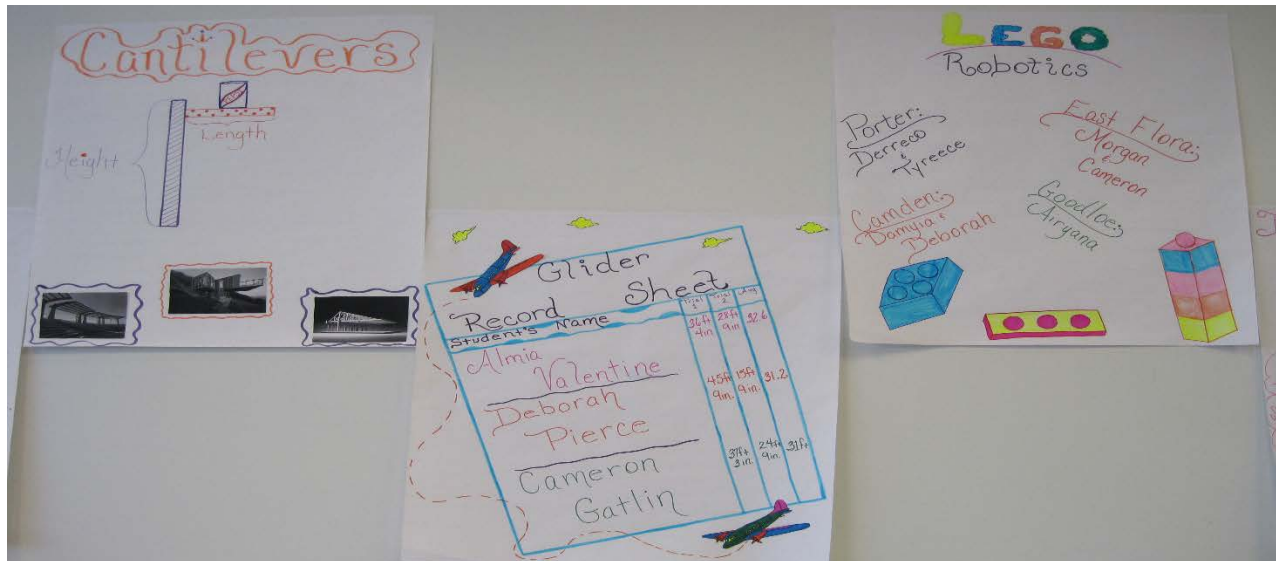 Cantilevers
Length
Height
Glider
Record Sheet
Student's Name
Trial 1 Trial 2 Avg.
Almia
Valentine
36ft 28ft 32.6
4in 9in
Deborah
Pierce
45ft 15ft 31.2
9in. 9in.
Cameron
Gatlin
37ft 24ft 31ft
3in. 9in.
LEGO
Robotics
Porter:
Derreco
&
Tyreece
East Flora:
Morgan
&
Cameron
Camden:
Damyia &
Deborah
Goodloe:
Airyana